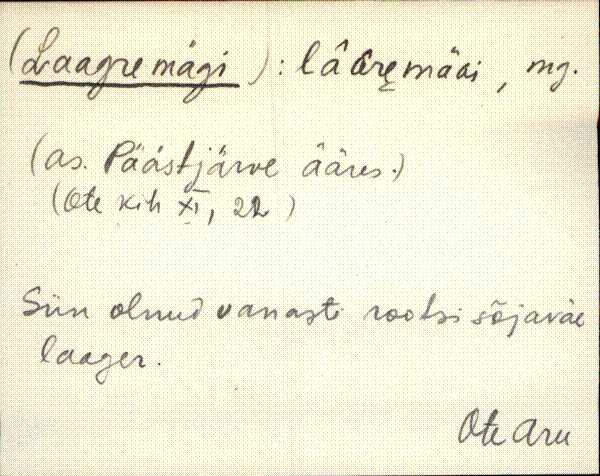 (Laagremägi): lāGręmäGi, mg.
(as. Päästjärve ääres.)
(Ote kih XI, 22)
Siin olnud vanasti rootsi sõjaväe
laager.
Ote Aru